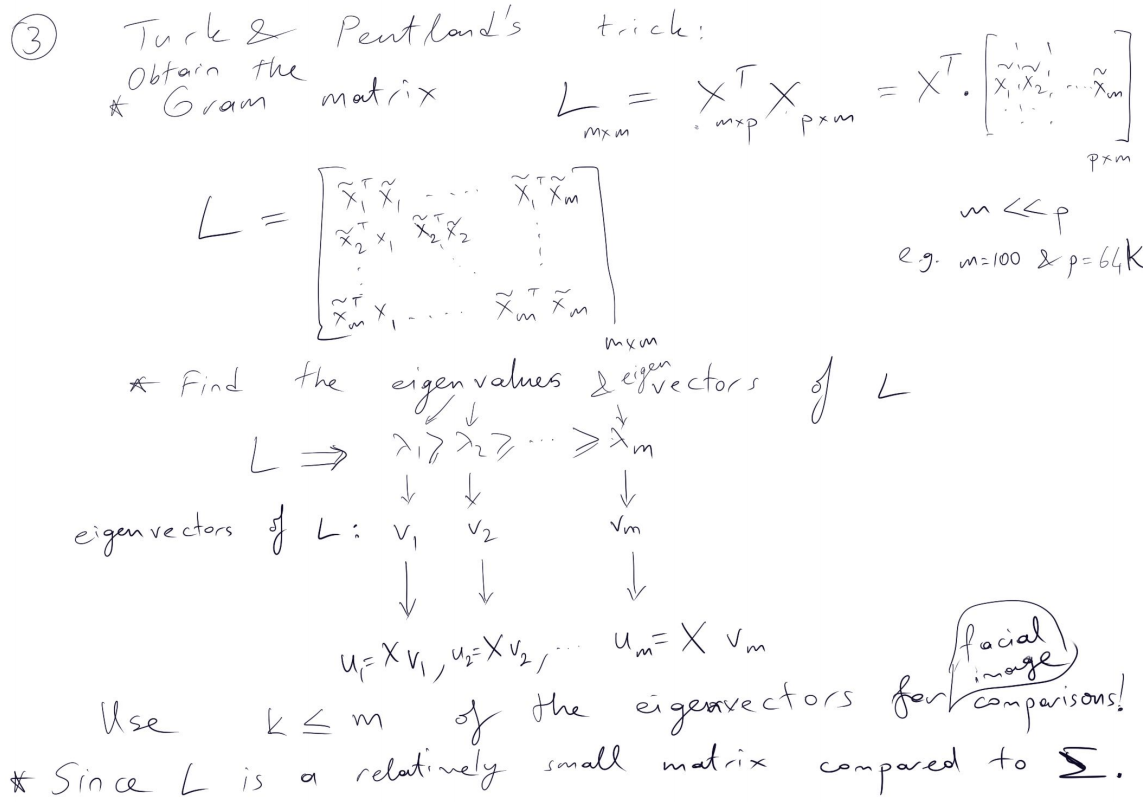 ③ Turk & Pentland's trick:
Obtain the
* Gram matrix L = XᵀX = Xᵀ · [x̃₁ x̃₂ .... x̃m]
m×m m×p p×m p×m
L = [x̃₁ᵀx̃₁ ..... x̃₁ᵀx̃m
x̃₂ᵀx₁ x̃₂ᵀx̃₂
x̃mᵀx₁ ..... x̃mᵀx̃m] m×m
m << p
e.g. m=100 & p=64K
* Find the eigenvalues & eigenvectors of L
L ⇒ λ₁ ≥ λ₂ ≥ ... ≥ λm
↓ ↓ ↓
eigenvectors of L: v₁ v₂ vm
↓ ↓ ↓
u₁=Xv₁, u₂=Xv₂, ... um=X vm
Use k ≤ m of the eigenvectors for facial image comparisons!
* Since L is a relatively small matrix compared to Σ.